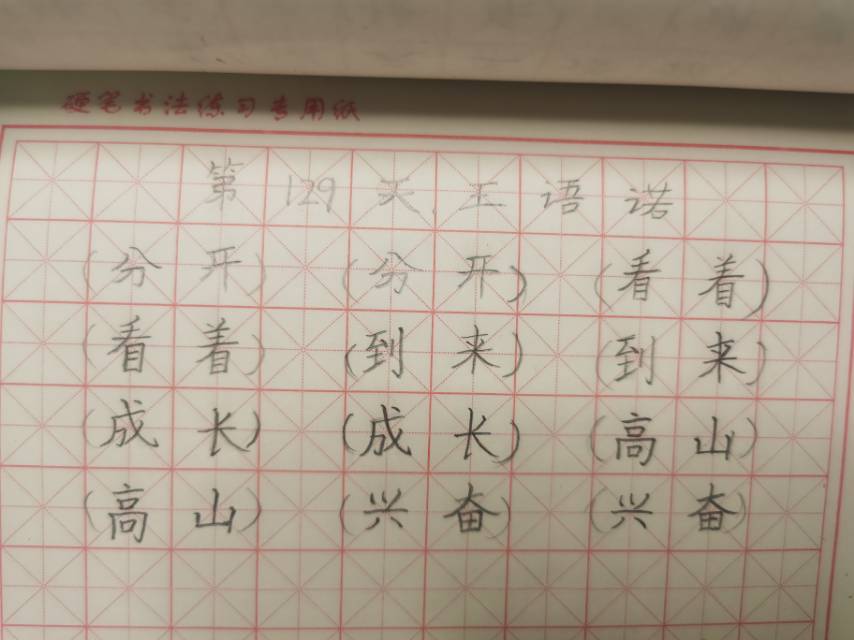 硬笔书法练习专用纸
第129天 王语诺
(分开) (分开) (看着)
(看着) (到来) (到来)
(成长) (成长) (高山)
(高山) (兴奋) (兴奋)